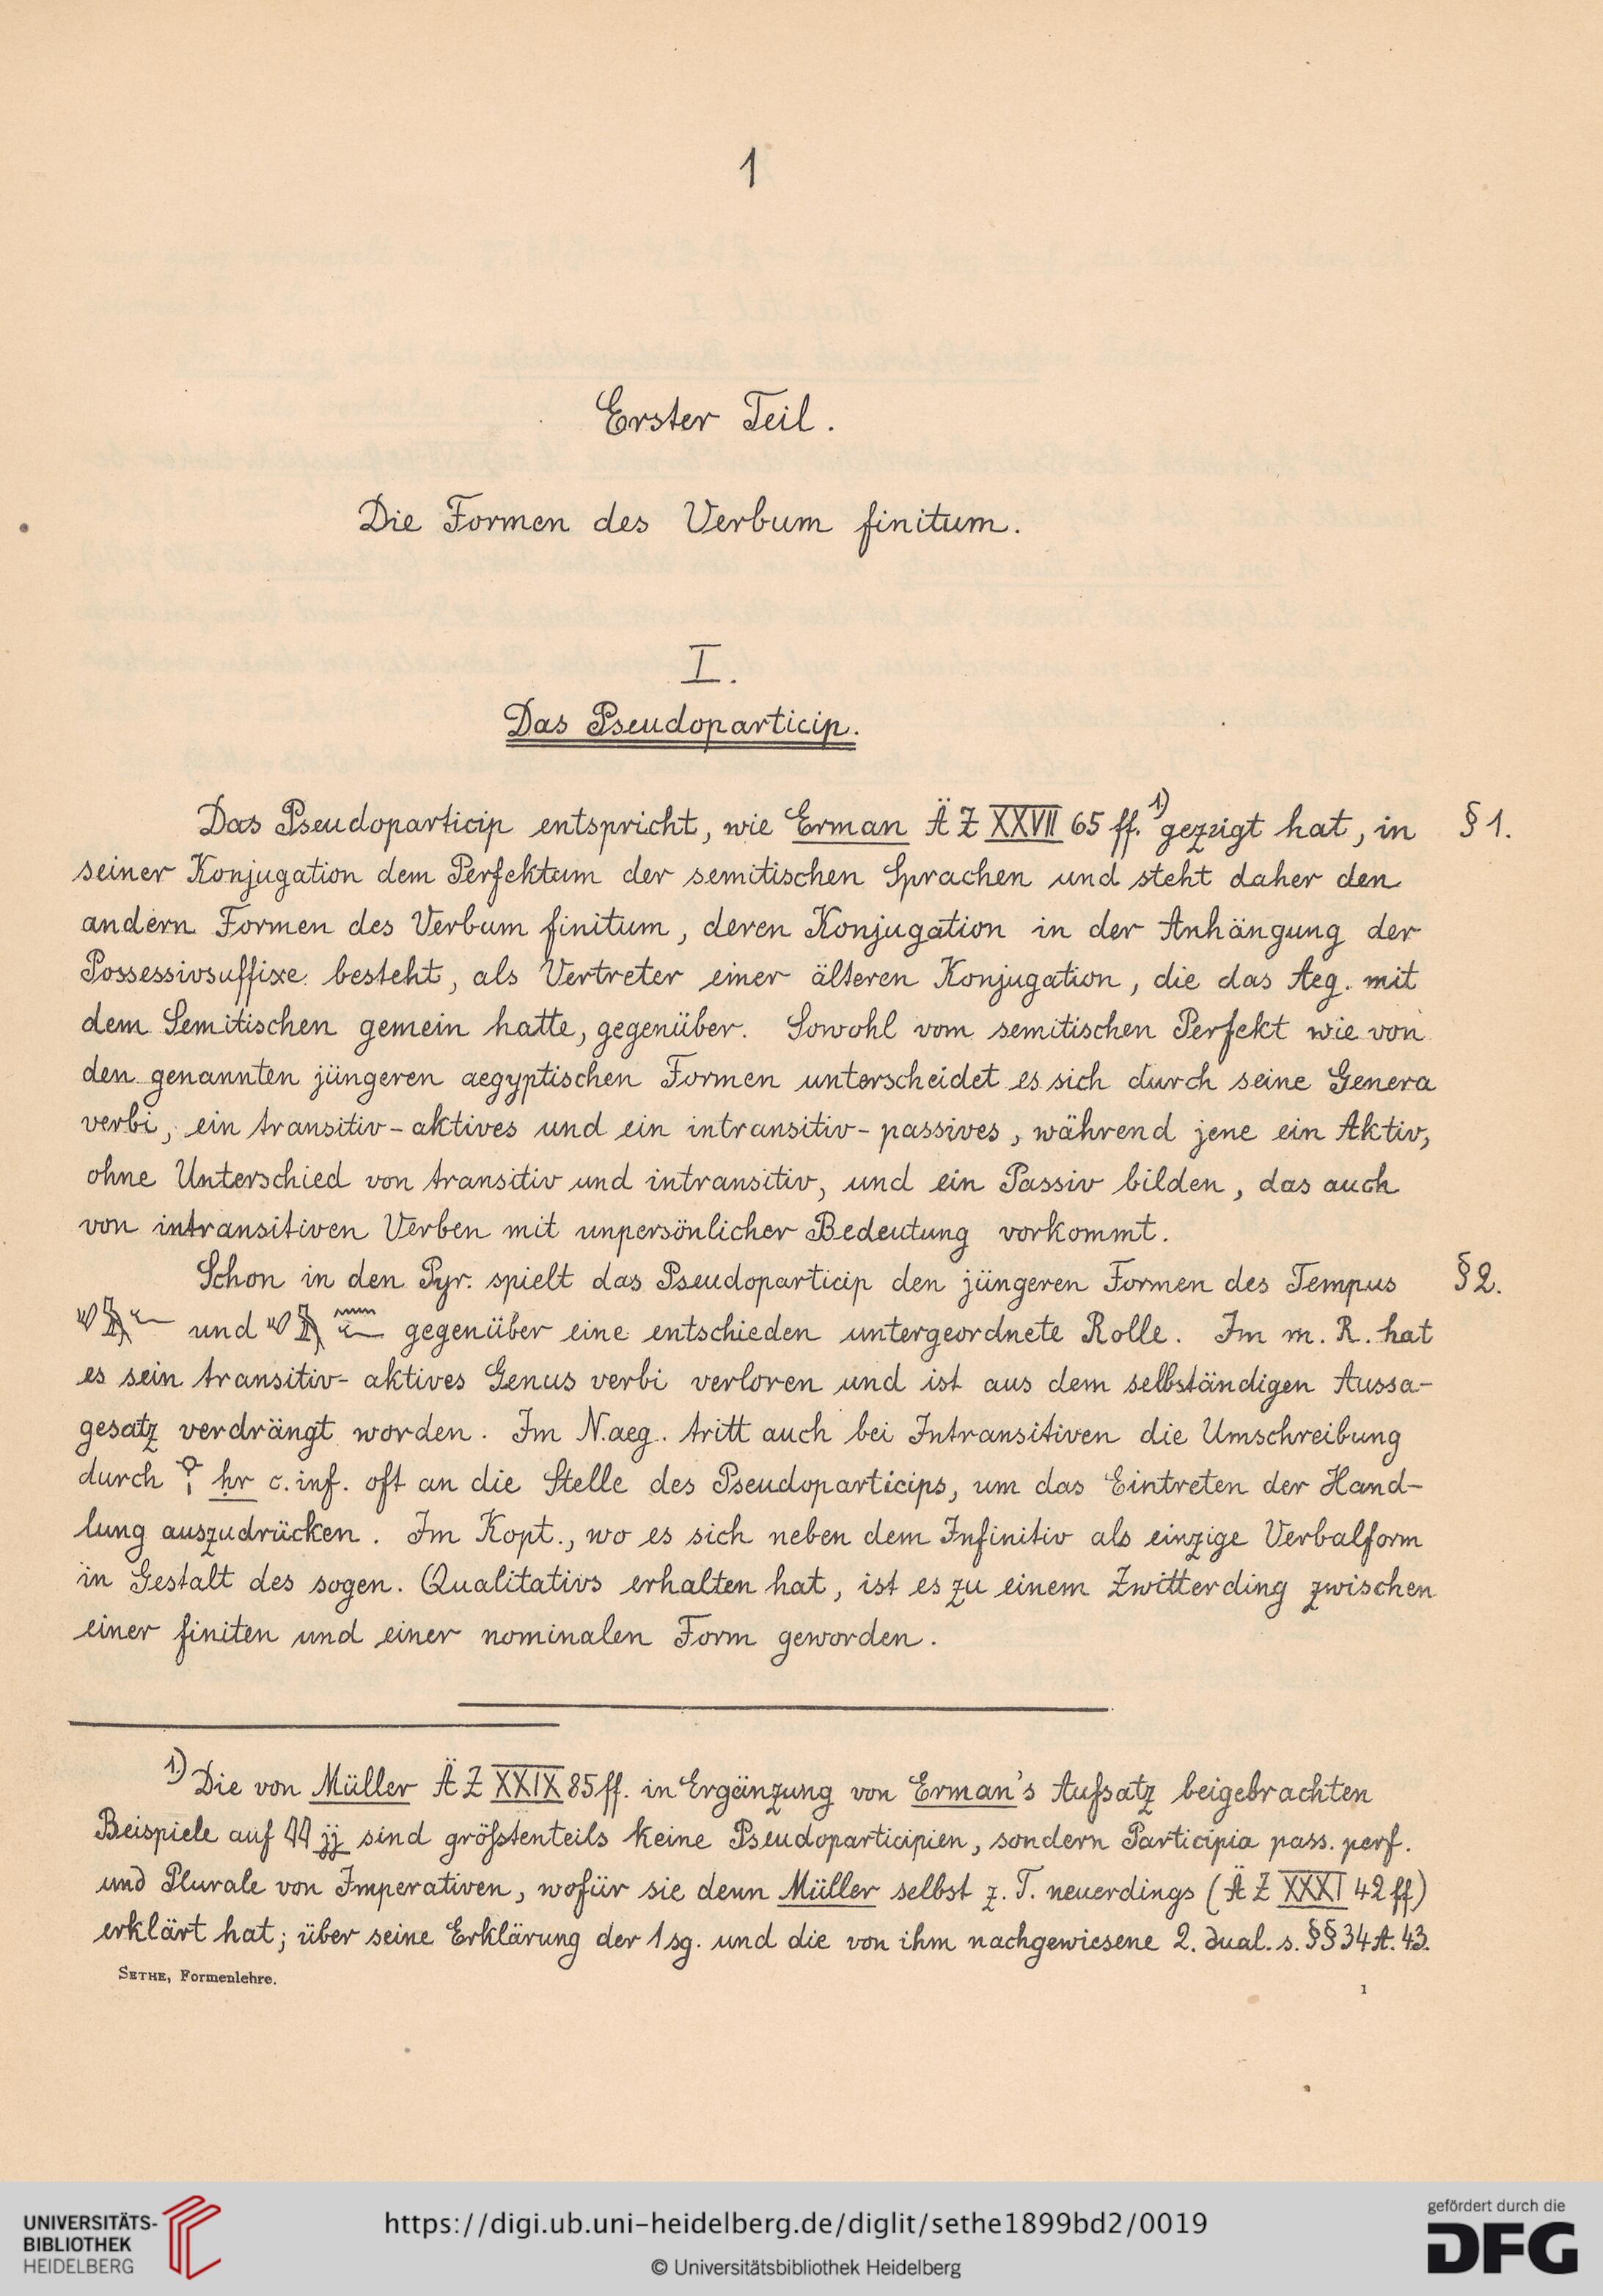 1
Erster Teil.
Die Formen des Verbum finitum.
I.
Das Pseudoparticip.
Das Pseudoparticip entspricht, wie Erman ÄZ XXVII 65 ff. 1) gezeigt hat, in § 1.
seiner Konjugation dem Perfektum der semitischen Sprachen und steht daher den
andern Formen des Verbum finitum, deren Konjugation in der Anhängung der
Possessivsuffixe besteht, als Vertreter einer älteren Konjugation, die das Aeg. mit
dem Semitischen gemein hatte, gegenüber. Sowohl vom semitischen Perfekt wie von
den genannten jüngeren aegyptischen Formen unterscheidet es sich durch seine Genera
verbi, ein transitiv-aktives und ein intransitiv-passives, während jene ein Aktiv,
ohne Unterschied von transitiv und intransitiv, und ein Passiv bilden, das auch
von intransitiven Verben mit unpersönlicher Bedeutung vorkommt.
Schon in den Pyr. spielt das Pseudoparticip den jüngeren Formen des Tempus § 2.
und gegenüber eine entschieden untergeordnete Rolle. Im m. R. hat
es sein transitiv-aktives Genus verbi verloren und ist aus dem selbständigen Aussa-
gesatz verdrängt worden. Im N.aeg. tritt auch bei Intransitiven die Umschreibung
durch ḥr c. inf. oft an die Stelle des Pseudoparticips, um das Eintreten der Hand-
lung auszudrücken. Im Kopt., wo es sich neben dem Infinitiv als einzige Verbalform
in Gestalt des sogen. Qualitativs erhalten hat, ist es zu einem Zwitterding zwischen
einer finiten und einer nominalen Form geworden.
1.) Die von Müller ÄZ XXIX 85 ff. in Ergänzung von Erman's Aufsatz beigebrachten
Beispiele auf 𓇋𓇋 jj sind größtenteils keine Pseudoparticipien, sondern Participia pass. perf.
und Plurale von Imperativen, wofür sie denn Müller selbst z. T. neuerdings (ÄZ XXXI 42 ff)
erklärt hat; über seine Erklärung der 1 sg. und die von ihm nachgewiesene 2. dual. s. §§ 34 A. 43.
SETHE, Formenlehre. 1
UNIVERSITÄTS-
BIBLIOTHEK
HEIDELBERG
https://digi.ub.uni-heidelberg.de/diglit/sethe1899bd2/0019
© Universitätsbibliothek Heidelberg
gefördert durch die
DFG